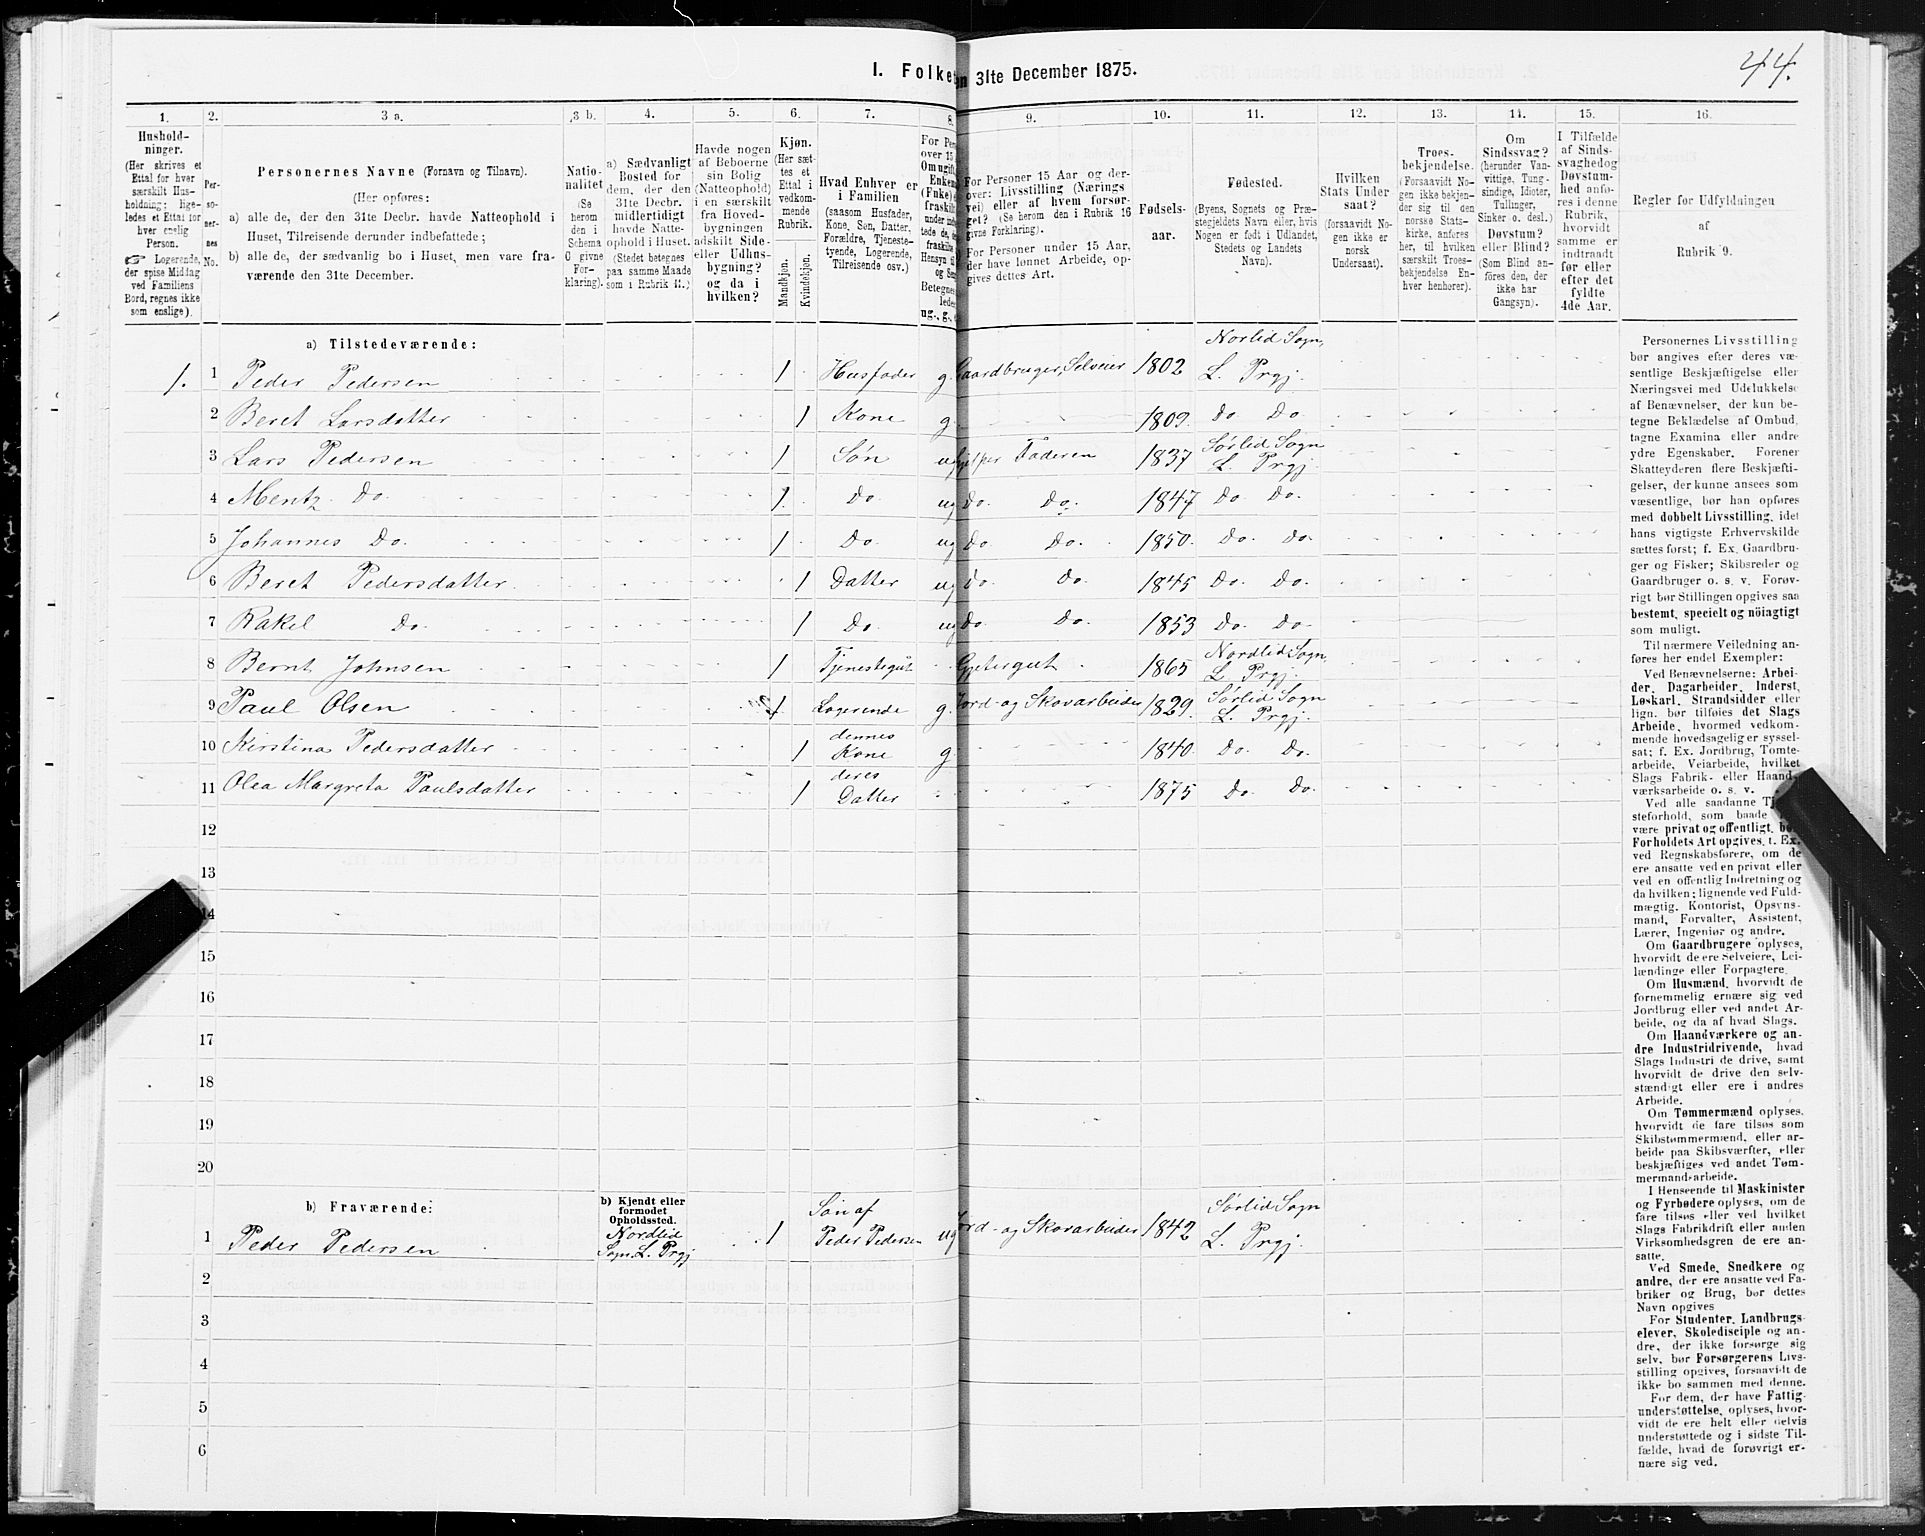 44.
I. Folketæn 31te December 1875.
1. 2. 3 a. 3 b. 4. 5. 6. 7. 8. 9. 10. 11. 12. 13. 14. 15. 16.
Hushold-
ninger.
(Her skrives et
Ettal for hver
særskilt Hus-
holdning; lige-
ledes et Ettal for
hver enslig
Person.
☞ Logerende,
der spise Middag
ved Familiens
Bord, regnes ikke
som enslige).
Per-
so-
ner-
nes
No.
Personernes Navne (Fornavn og Tilnavn).
(Her opføres:
a) alle de, der den 31te Decbr. havde Natteophold i
Huset, Tilreisende derunder indbefattede;
b) alle de, der sædvanlig bo i Huset, men vare fra-
værende den 31te December.
Natio-
nalitet
(Se
herom
den i
Schema
C givne
For-
klaring).
a) Sædvanligt
Bosted for
dem, der den
31te Decbr.
midlertidigt
havde Natte-
ophold i Huset.
(Stedet betegnes
paa samme Maade
som i Rubrik 11.)
Havde nogen
af Beboerne
sin Bolig
(Natteophold)
i en særskilt
fra Hoved-
bygningen
adskilt Side-
eller Udhus-
bygning?
og da i
hvilken?
Kjøn.
(Her sæt-
tes et
Ettal i
vedkom-
mende
Rubrik.
Mandkjøn.
Kvindekjøn.
Hvad Enhver er
i Familien
(saasom Husfader,
Kone, Søn, Datter,
Forældre, Tjeneste-
tyende, Logerende,
Tilreisende osv.)
For Pe
over 15
Om ugift
Enkem
(Fnke) e
fraskilt
under
tede de,
fraskilte
Hensyn til
og Sen
Betegnes
lede
ug., g.,
For Personer 15 Aar og der-
over: Livsstilling (Nærings
vei) eller af hvem forsør-
get? (Se herom den i Rubrik 16
givne Forklaring).
For Personer under 15 Aar,
der have lønnet Arbeide, op-
gives dettes Art.
Fødsels-
aar.
Fødested.
(Byens, Sognets og Præ-
stegjeldets Navn eller, hvis
Nogen er født i Udlandet,
Stedets og Landets
Navn).
Hvilken
Stats Under
saat?
(forsaavidt No-
gen ikke er
norsk
Undersaat).
Troes-
bekjendelse.
(Forsaavidt No-
gen ikke bekjen-
der sig til den
norske Stats-
kirke, anføres
her, til hvilken
særskilt Troes-
bekjendelse En-
hver henhører).
Om
Sindssvag?
(herunder Van-
vittige, Tung-
sindige, Idioter,
Tullinger,
Sinker o. desl.)
Døvstum?
eller Blind?
(Som Blind an-
føres den, der
ikke har
Gangsyn).
I Tilfælde
af Sinds-
svaghed og
Døvstum-
hed anfø-
res i denne
Rubrik,
hvorvidt
samme er
indtraadt
før eller
efter det
fyldte
4de Aar.
Regler for Udfyldningen
af
Rubrik 9.
a) Tilstedeværende:
1. 1 Peder Pedersen 1 Husfader g. Gaardbruger, Selveier 1802 Nordlid Sogn, L. Prgj.
2 Beret Larsdatter 1 Kone g. 1809. Do Do
3 Lars Pedersen 1 Søn ug hjelper Faderen 1837 Sørlid Sogn L. Prgj.
4 Mentz Do 1. Do ug Do. Do. 1847 Do Do.
5 Johannes Do. 1 Do ug Do Do. 1850. Do. Do.
6 Beret Pedersdatter 1 Datter ug Do. Do. 1845 Do. Do.
7 Rakel Do 1 Do. ug Do. Do. 1853 Do Do.
8 Bernt Johnsen 1 Tjenestegut Gjetergut 1865 Nordlid Sogn, L Prgj.
9 Paul Olsen 1 Logerende g. Jord- og Skovarbeider 1829. Sørlid Sogn L. Prgj.
10 Kirstina Pedersdatter 1 dennes Kone g. 1840. Do. Do.
11 Olea Margreta Paulsdatter 1 deres Datter 1875 Do Do.
12
13
14
15
16
17
18
19
20
b) Fraværende:
b) Kjendt eller
formodet
Opholdssted.
1 Peder Pedersen Nordlid Sogn. L. Prgj 1 Søn af Peder Pedersen ug Jord- og Skovarbeider 1842 Sørlid Sogn L. Prgj.
2
3
4
5
6
Personernes Livsstilling
bør angives efter deres væ-
sentlige Beskjæftigelse eller
Næringsvei med Udelukkelse
af Benævnelser, der kun be-
tegne Beklædelse af Ombud,
tagne Examina eller andre
ydre Egenskaber. Forener
Skatteyderen flere Beskjæfti-
gelser, der kunne ansees som
væsentlige, bør han opføres
med dobbelt Livsstilling, idet
hans vigtigste Erhvervskilde
sættes først; f. Ex. Gaardbru-
ger og Fisker; Skibsreder og
Gaardbruger o. s. v. Forøv-
rigt bør Stillingen opgives saa
bestemt, specielt og nöiagtigt
som muligt.
Til nærmere Veiledning an-
føres her endel Exempler:
Ved Benævnelserne: Arbei-
der, Dagarbeider, Inderst,
Løskarl, Strandsidder eller
lign. bør tilføies det Slags
Arbeide, hvormed vedkom-
mende hovedsagelig er syssel-
sat; f. Ex. Jordbrug, Tomte-
arbeide, Veiarbeide, hvilket
Slags Fabrik- eller Haand-
værksarbeide o. s. v.
Ved alle saadanne Tj
steforhold, som baade
være privat og offentligt, bør
Forholdets Art opgives, t. Ex.
ved Regnskabsførere, om de
ere ansatte ved en privat eller
ved en offentlig Indretning og
da hvilken; lignende ved Fuld-
mægtig, Kontorist, Opsyns-
mand, Forvalter, Assistent,
Lærer, Ingeniør og andre.
Om Gaardbrugere oplyses,
hvorvidt de ere Selveiere, Lei-
lændinge eller Forpagtere.
Om Husmænd, hvorvidt de
fornemmelig ernære sig ved
Jordbrug eller ved andet Ar-
beide, og da af hvad Slags.
Om Haandværkere og an-
dre Industridrivende, hvad
Slags Industri de drive, samt
hvorvidt de drive den selv-
stændigt eller ere i andres
Arbeide.
Om Tømmermænd oplyses,
hvorvidt de fare tilsøs som
Skibstømmermænd, eller ar-
beide paa Skibsværfter, eller
beskjæftiges ved andet Tøm-
mermandsarbeide.
I Henseende til Maskinister
og Fyrbødere oplyses, om de
fare tilsøs eller ved hvilket
Slags Fabrikdrift eller anden
Virksomhedsgren de ere an-
satte.
Ved Smede, Snedkere og
andre, der ere ansatte ved Fa-
briker og Brug, bør dettes
Navn opgives
For Studenter, Landbrugs-
elever, Skoledisciple og an-
dre, der ikke forsørge sig
selv, bør Forsørgerens Livs-
stilling opgives, forsaavidt de
ikke bo sammen med denne.
For dem, der have Fattig-
understøttelse, oplyses, hvor-
vidt de ere helt eller delvis
understøttede og i sidste Til-
fælde, hvad de forøvrigt er-
nære sig ved.